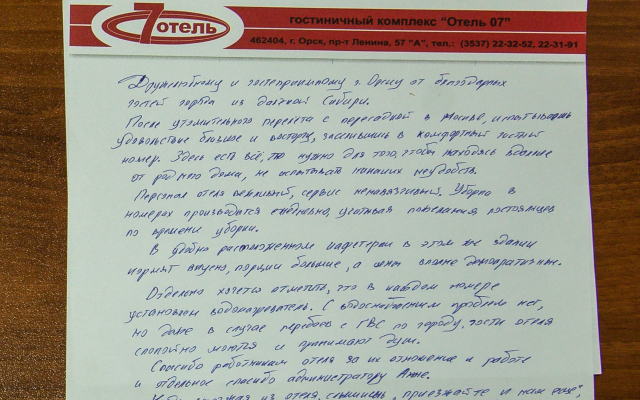 7 отель
гостиничный комплекс "Отель 07"
462404, г. Орск, пр-т Ленина, 57 "А", тел.: (3537) 22-32-52, 22-31-91
Дружелюбному и гостеприимному г. Орску от благодарных
гостей города из далёкой Сибири.
После утомительного перелёта с пересадкой в Москве, испытываешь
удовольствие близкое и восторгу, заселившись в комфортный гостин
номер. Здесь есть всё, что нужно для того, чтобы находясь вдалеке
от родного дома, не испытывать никаких неудобств.
Персонал отеля вежливый, сервис ненавязчивый. Уборка в
номерах производится ежедневно, учитывая пожелания постояльцев
по времени уборки.
В удобно расположенном кафетерии в этом же здании
кормят вкусно, порции большие, а цены вполне демократичные.
Отдельно хочется отметить, что в каждом номере
установлен водонагреватель. С водоснабжением проблем нет,
но даже в случае перебоев с ГВС по городу, гости отеля
спокойно моются и принимают душ.
Спасибо работникам отеля за их отношение к работе
и отдельное спасибо администратору Анне.
из отеля, слышишь, "приезжайте к нам ещё",